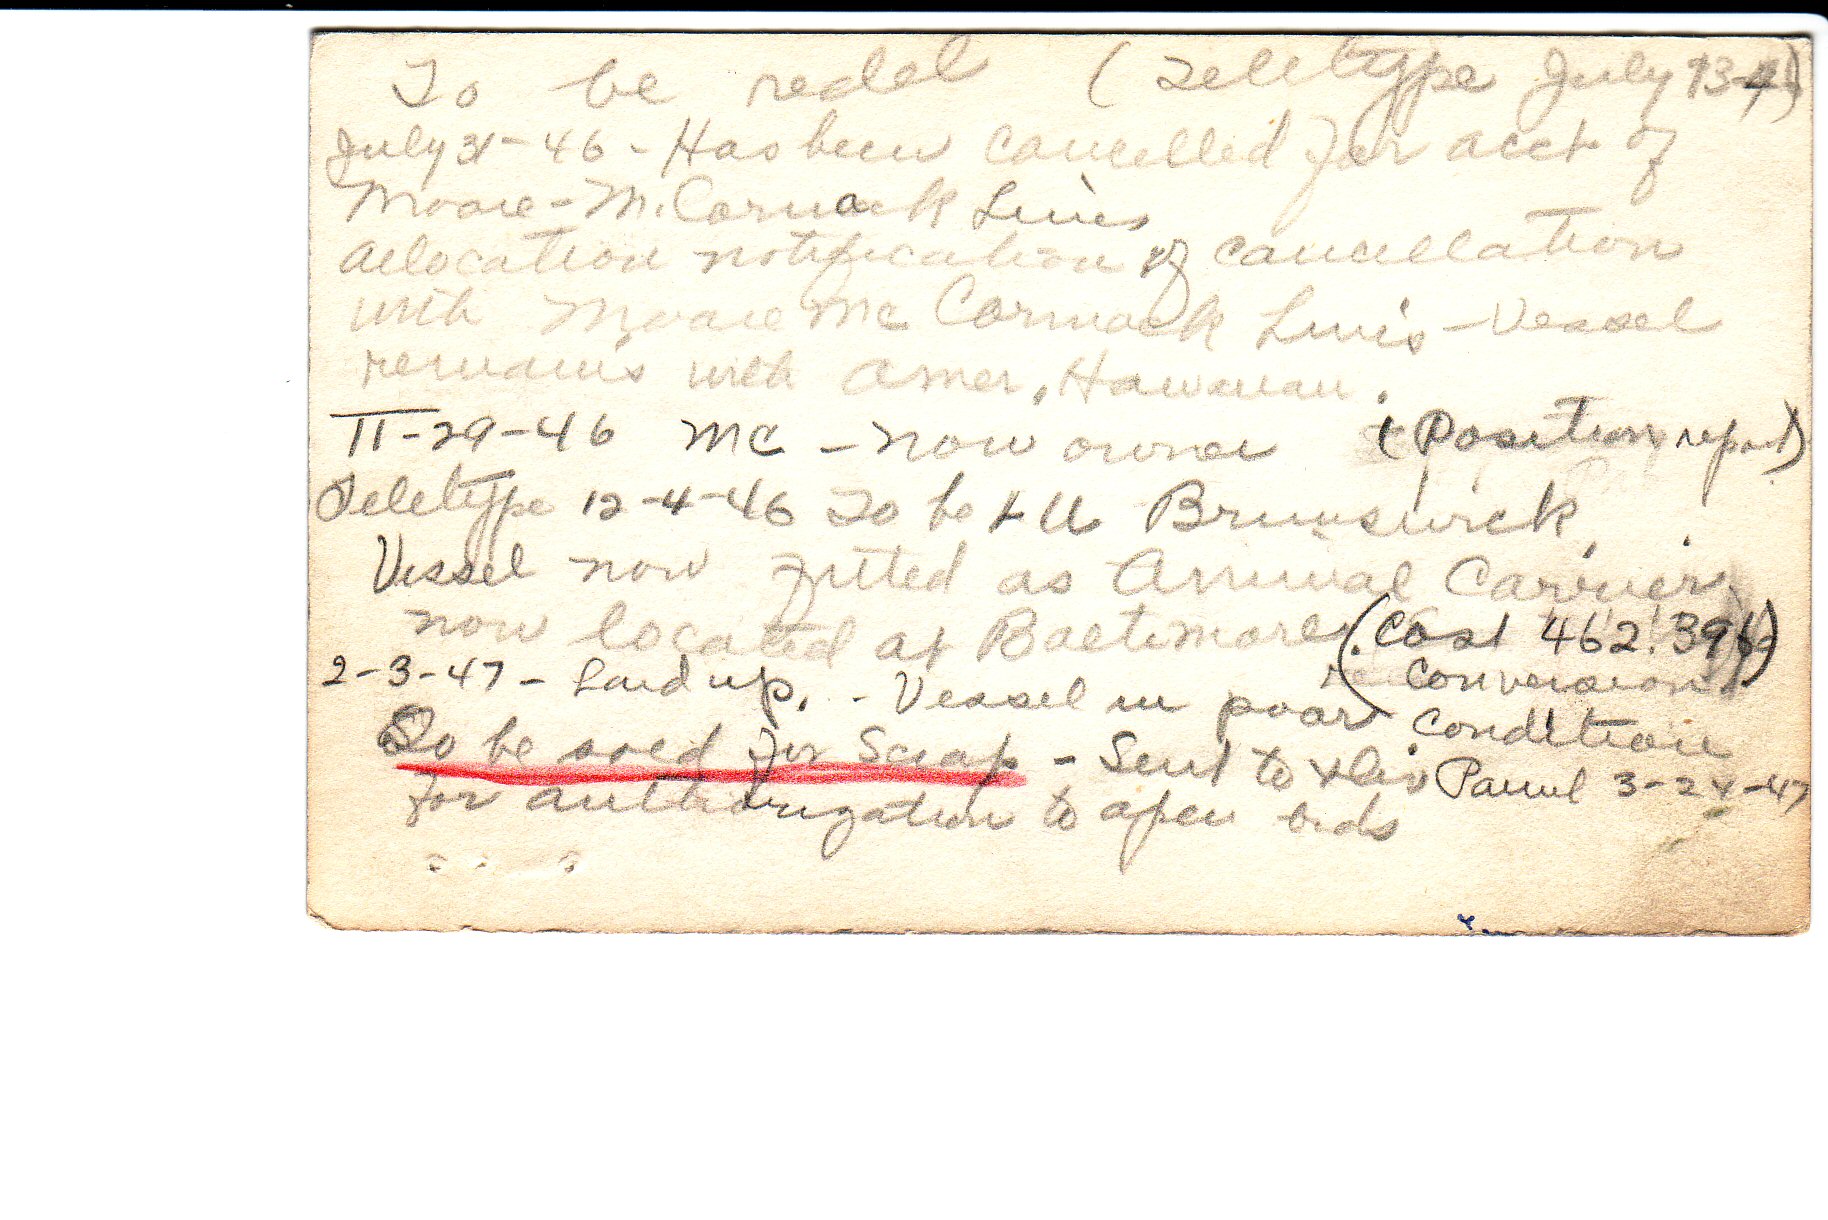 To be redel (Teletype July 13-
July 31-46 - Has been cancelled for acct of
Moore-McCormack Lines
allocation notification of cancellation
with Moore McCormack Lines - Vessel
remains with Amer. Hawaiian.
11-29-46 MC - now owner (Position report)
Teletype 12-4-46 To be LU Brunswick.
Vessel now fitted as Animal Carrier
now located at Baltimore (Cost 462.396
Conversion)
2-3-47 - Laid up. - Vessel in poor condition
To be sold for Scrap - Sent to Panel 3-24-47
for authorization to open bids